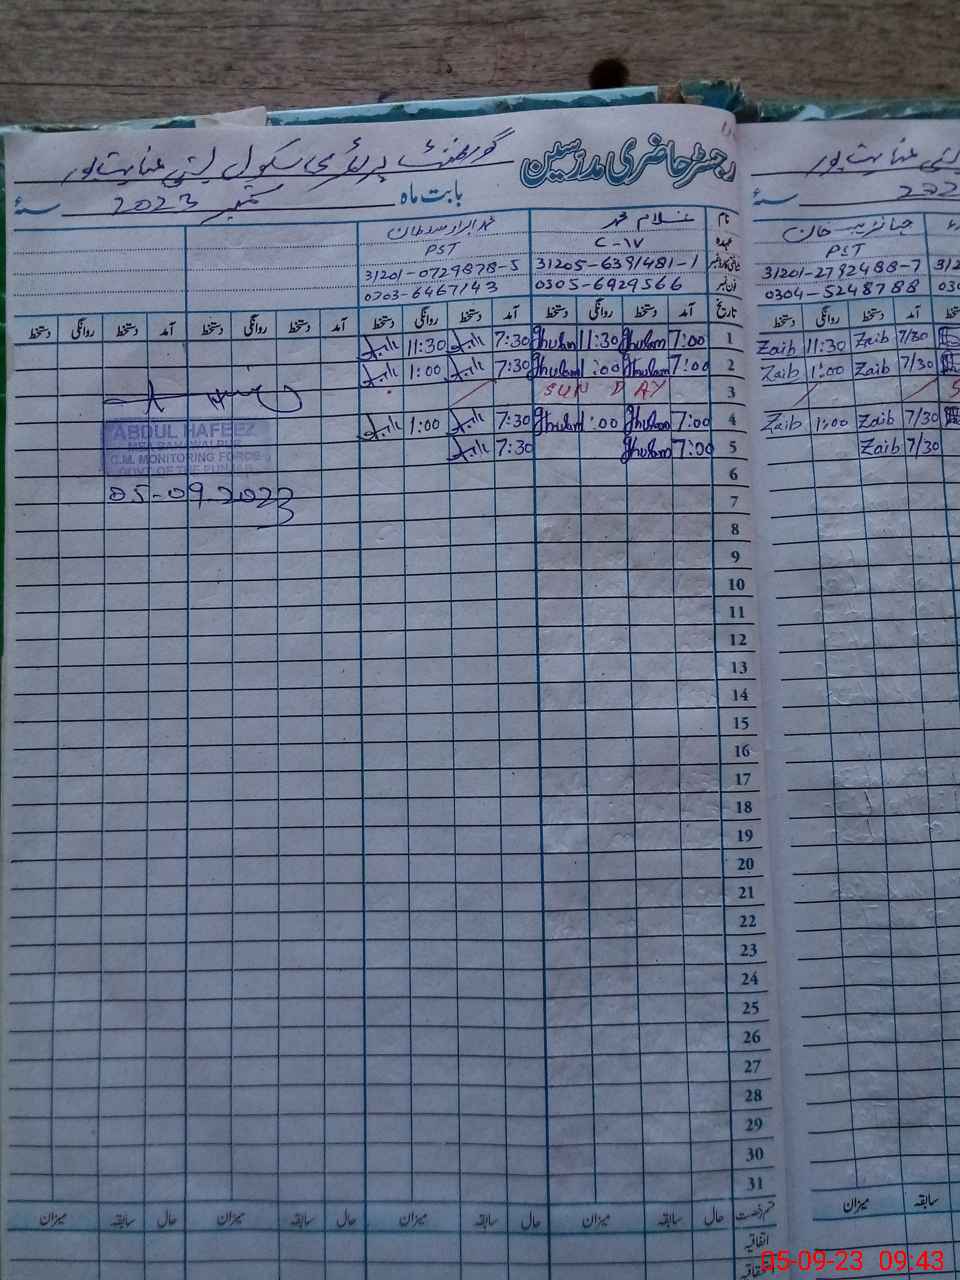 رجسٹر حاضری مدرسین گورنمنٹ پرائمری سکول بستی عنایت پور
بابت ماہ ستمبر 2023 سنہ
نام غلام محمد محمد ابرار سلطان
عہدہ C-IV PST
31205-6391481-1 31201-0729878-5
فون نمبر 0305-6929566 0303-6467143
تاریخ آمد دستخط روانگی دستخط آمد دستخط روانگی دستخط آمد دستخط روانگی دستخط آمد دستخط روانگی دستخط
1 7:00 Ghulam 11:30 Ghulam 7:30 11:30
2 7:00 Ghulam 1:00 Ghulam 7:30 1:00
3 SUN DAY
4 7:00 Ghulam 1:00 Ghulam 7:30 1:00
5 7:00 Ghulam 7:30
6
7
8
9
10
11
12
13
14
15
16
17
18
19
20
21
22
23
24
25
26
27
28
29
30
31
قسم رخصت حال سابقہ میزان حال سابقہ میزان حال سابقہ میزان حال سابقہ میزان
اتفاقیہ
ABDUL HAFEEZ
MEA BAHAWALPUR
C.M. MONITORING FORCE
GOVT OF THE PUNJAB
05-09-2023
بستی عنایت پور
سنہ 202
جہانزیب خان
PST
31201-2792488-7 312
0304-5248788 030
آمد دستخط روانگی دستخط
7/30 Zaib 11:30 Zaib
7/30 Zaib 1:00 Zaib
7/30 Zaib 1:00 Zaib
7/30 Zaib
سابقہ میزان
05-09-23 09:43